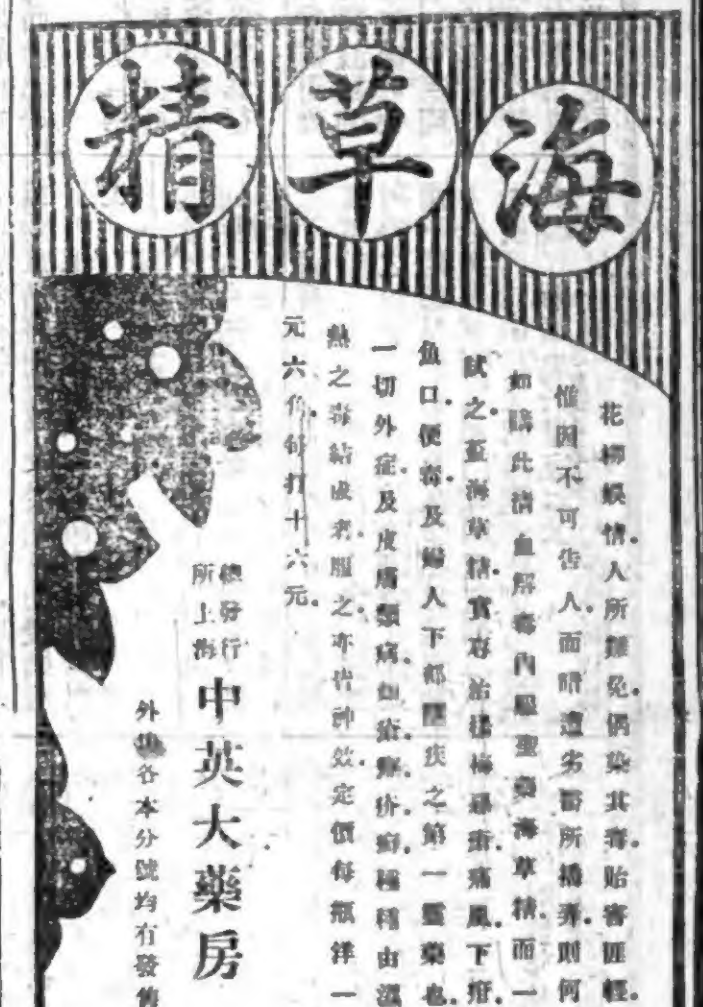 海草精
花柳娛情。人所難免。偶染其毒。貽害匪輕。
惟因不可告人。而暗遭劣醫所播弄。則何
如購此清血解毒內服聖藥海草精。而一
試之。蓋海草精實專治楊梅毒瘡痛風下疳。
魚口便毒。及婦人下部隱疾之第一靈藥也。
一切外症及皮膚頑病。如瘡癬疥癩。種種由濕
熱之毒結成者。服之亦皆神效。定價每瓶洋一
元六角。每打十六元。
總發行所上海中英大藥房
外埠各本分號均有發售